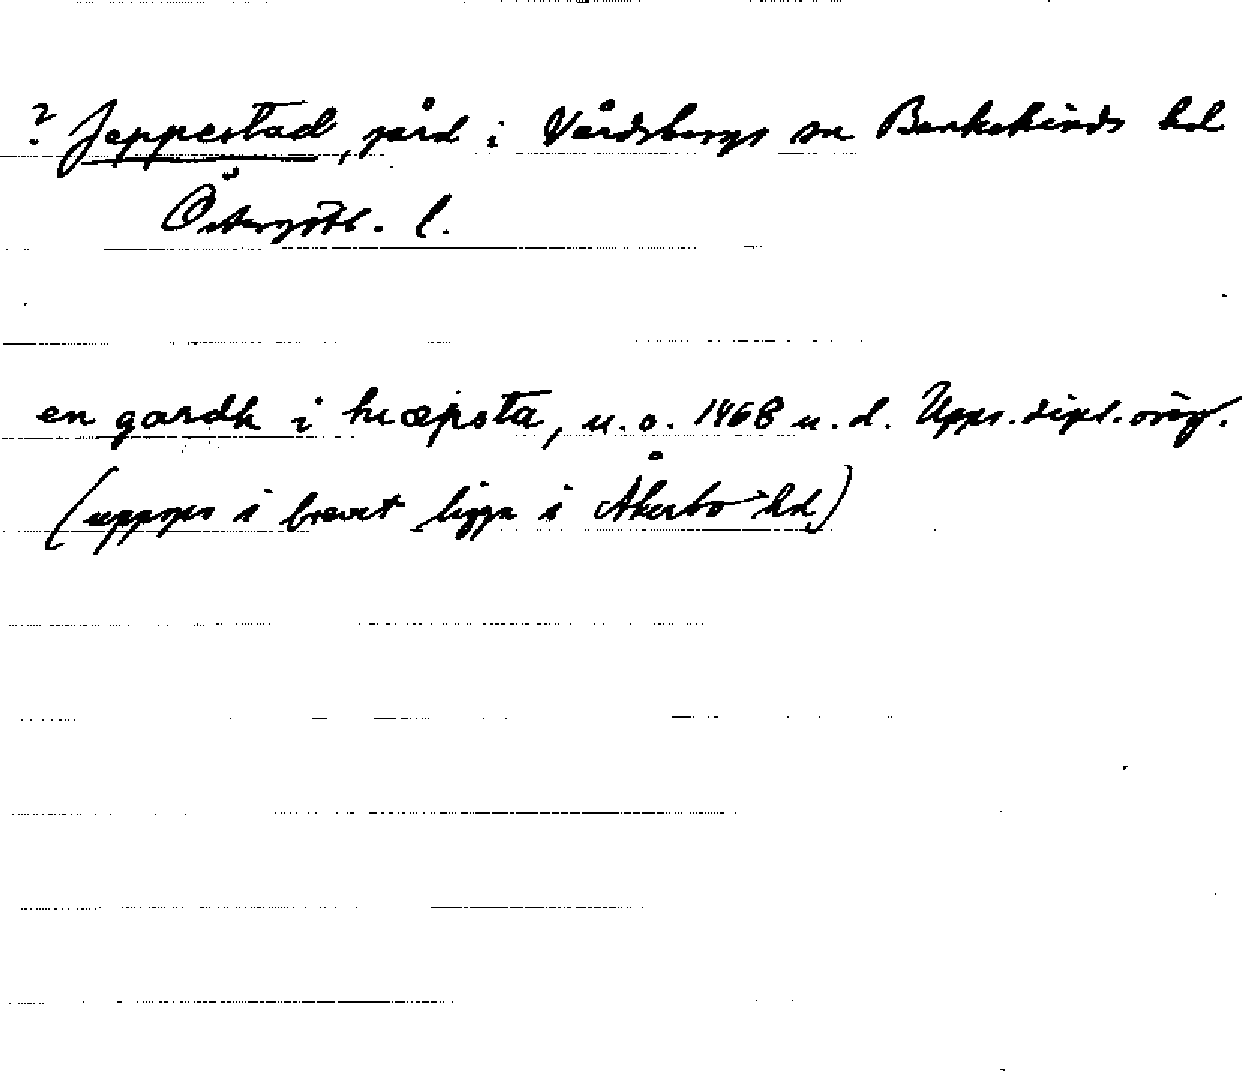 ? Jeppestad, gård i Vårdsbergs sn Bankekinds hd
Östergötl. l.
en gardh i hiæpsta, u. o. 1468 u. d. Upps. dipl. orig.
(uppges i brevet ligga i Åkerbo hd)